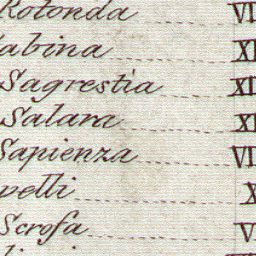 Rotonda VI
abina XI
Sagrestia XI
Salara XI
Sapienza VI
velli X
Scrofa V